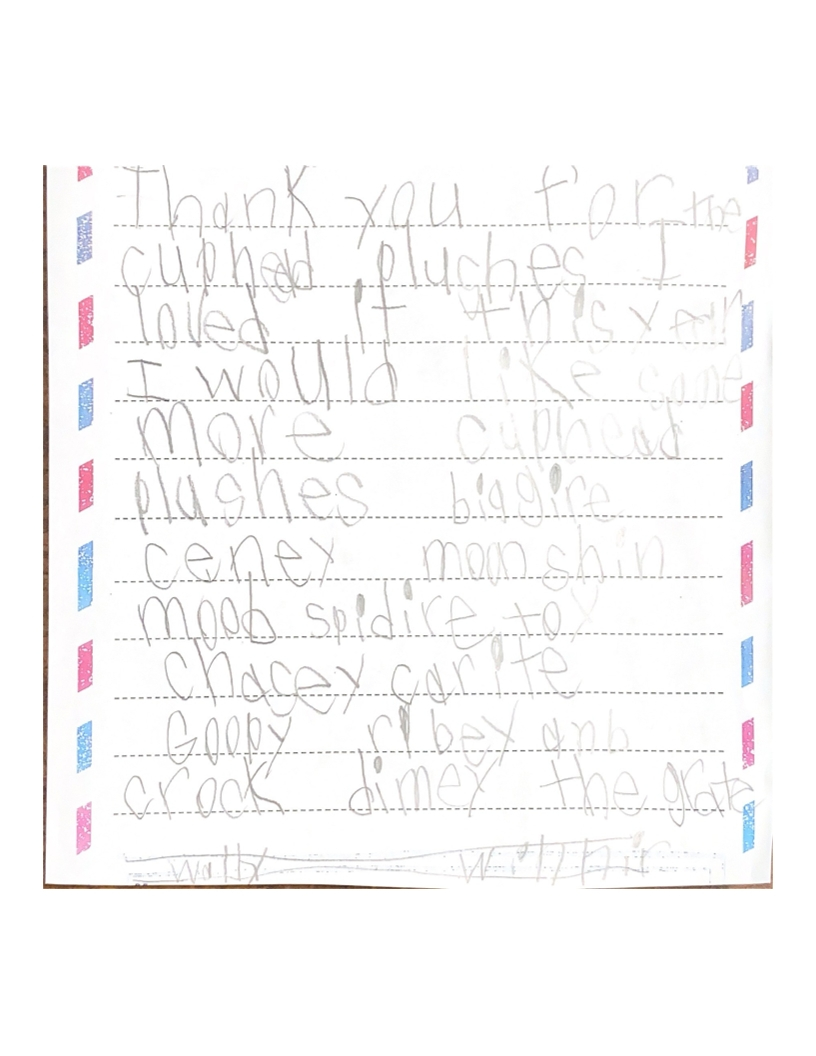 Thank you for the
cuphead plushes I
loved it this year
I would like some
more cuphead
plushes bidgire
ceney moonshin
moob spidire to
chacey carite
Goopy ribey anb
crock dimey the grate
wally with hir